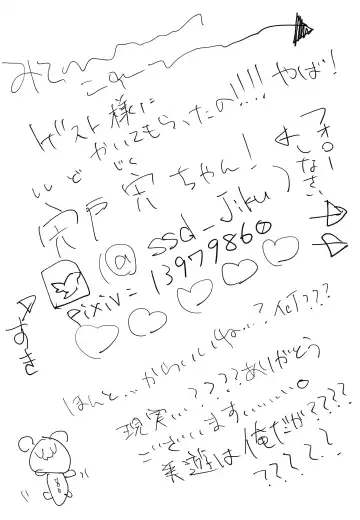 みて〜
これ〜
ゲスト様に
かいてもらったの!!!! やば!
ししど じく
宍戸 宍ちゃん!
フォローよしなさい
(@ssd_Jiku)
pixiv=13979860
すき
ほんと…かわいいね…?何???
現実…????ありがとう
ございます……。
美遊は俺だが????
?????